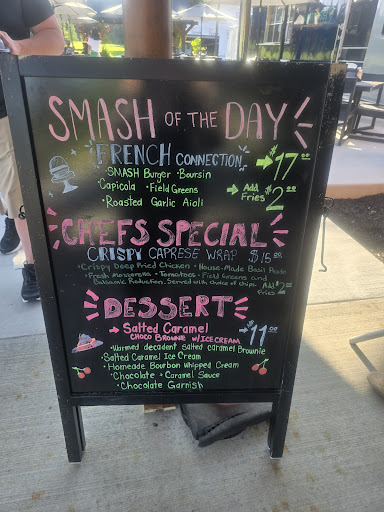 SMASH OF THE DAY
FRENCH CONNECTION
$17.00
• SMASH Burger • Boursin
• Capicola • Field Greens
• Roasted Garlic Aioli
Add Fries $2.00
CHEFS SPECIAL
CRISPY CAPRESE WRAP $15.00
• Crispy Deep Fried Chicken • House-Made Basil Pesto
• Fresh Mozzarella • Tomatoes • Field Greens and
Balsamic Reduction. Served with choice of chips. Add Fries $2
DESSERT
Salted Caramel
CHOCO BROWNIE W/ICE CREAM
$11.00
• Warmed decadent salted caramel Brownie
• Salted Caramel Ice Cream
• Homeade Bourbon Whipped Cream
• Chocolate + Caramel Sauce
• Chocolate Garnish